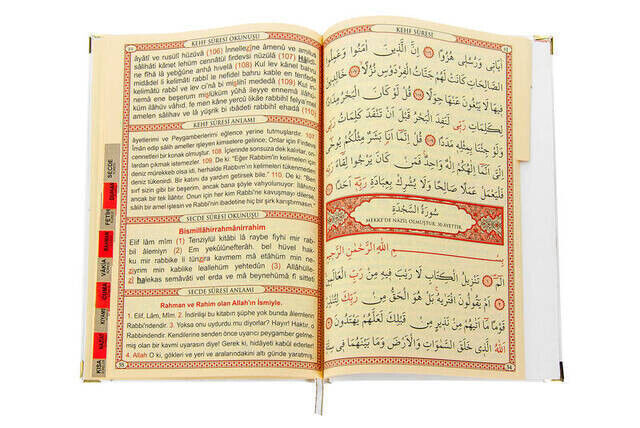 KEHF SÛRESİ OKUNUŞU
âyâtî ve rusulî hüzüvâ (106) İnnellezîne âmenû ve amilus
sâlihâti kânet lehüm cennâtül firdevsi nüzülâ (107) Hâlidî-
ne fîhâ lâ yebğûne anhâ hıvelâ (108) Kul lev kânel bahru
midâdel li kelimâti rabbî le nefidel bahru kable en tenfede
kelimâtü rabbî ve lev ci'nâ bi mislihî mededâ (109) Kul in-
nemâ ene beşerum mislüküm yûhâ ileyye ennemâ ilâhü-
küm ilâhüv vâhid, fe men kâne yercû likâe rabbihî felya'mel
amelen sâlihav ve lâ yüşrik bi ıbâdeti rabbihî ehadâ (110)
KEHF SÛRESİ ANLAMI
âyetlerimi ve Peygamberlerimi eğlence yerine tutmuşlardır. 107.
İman edip salih ameller işleyen kimselere gelince; Onlar için Firdevs
cennetleri bir konak olmuştur. 108. İçlerinde sonsuza dek kalırlar, on-
lardan çıkmak istemezler. 109. De ki: "Eğer Rabbim'in kelimeleri için
deniz mürekkep olsa idi, herhalde Rabbim'in kelimeleri tükenmeden
deniz tükenirdi. Bir katını da yardım getirsek bile." 110. De ki: "Ben
sırf sizin gibi bir beşerim, ancak bana şöyle vahyolunuyor: İlâhınız
ancak bir tek ilâhtır. Onun için her kim Rabbi'ne kavuşmayı dilerse
SECDE SÛRESİ OKUNUŞU
Bismillâhirrahmânirrahîm
Elif lâm mîm (1) Tenzîlül kitâbi lâ raybe fîhi mir rab-
bil âlemîyn (2) Em yekûlûnefterâh, bel hüvel hak-
ku mir rabbike li tünzira kavmem mâ etâhüm min ne-
zîyrim min kablike leallehüm yehtedûn (3) Allâhülle-
zî halekas semâvâti vel erda ve mâ beynehümâ fî sitteti
SECDE SÛRESİ ANLAMI
Rahman ve Rahim olan Allah'ın İsmiyle.
1. Elif, Lâm, Mîm. 2. İndirilişi bu kitabın şüphe yok bunda âlemlerin
Rabb'indendir. 3. Yoksa onu uydurdu mu diyorlar? Hayır! Haktır, o
Rabbindendir. Kendilerine senden önce uyarıcı peygamber gelme-
miş olan bir kavmi uyarasın diye! Gerek ki, hidâyeti kabûl ederler!
4. Allah O ki, gökleri ve yeri ve aralarındakini altı günde yaratmış,
SECDE
FETİH
VAKIA
CUMA
KIYAMET
KISA
KEHF SÛRESİ
اٰيَاتٖي وَرُسُلٖي هُزُوًا ﴿١٠٦﴾ اِنَّ الَّذٖينَ اٰمَنُوا وَعَمِلُوا
الصَّالِحَاتِ كَانَتْ لَهُمْ جَنَّاتُ الْفِرْدَوْسِ نُزُلًا ﴿١٠٧﴾ خَالِدٖينَ
فٖيهَا لَا يَبْغُونَ عَنْهَا حِوَلًا ﴿١٠٨﴾ قُلْ لَوْ كَانَ الْبَحْرُ مِدَادًا
لِكَلِمَاتِ رَبّٖي لَنَفِدَ الْبَحْرُ قَبْلَ اَنْ تَنْفَدَ كَلِمَاتُ رَبّٖي
وَلَوْ جِئْنَا بِمِثْلِهٖ مَدَدًا ﴿١٠٩﴾ قُلْ اِنَّمَا اَنَا بَشَرٌ مِثْلُكُمْ يُوحٰى
اِلَيَّ اَنَّمَا اِلٰهُكُمْ اِلٰهٌ وَاحِدٌ فَمَنْ كَانَ يَرْجُوا لِقَاءَ رَبِّهٖ
فَلْيَعْمَلْ عَمَلًا صَالِحًا وَلَا يُشْرِكْ بِعِبَادَةِ رَبِّهٖ اَحَدًا ﴿١١٠﴾
سُورَةُ السَّجْدَةِ
MEKKE'DE NAZİL OLMUŞTUR. 30 AYETTİR.
بِسْمِ اللّٰهِ الرَّحْمٰنِ الرَّحٖيمِ
الٓمٓ ﴿١﴾ تَنْزٖيلُ الْكِتَابِ لَا رَيْبَ فٖيهِ مِنْ رَبِّ الْعَالَمٖينَ ﴿٢﴾
اَمْ يَقُولُونَ افْتَرٰيهُ بَلْ هُوَ الْحَقُّ مِنْ رَبِّكَ لِتُنْذِرَ
قَوْمًا مَا اَتٰيهُمْ مِنْ نَذٖيرٍ مِنْ قَبْلِكَ لَعَلَّهُمْ يَهْتَدُونَ ﴿٣﴾
اَللّٰهُ الَّذٖي خَلَقَ السَّمٰوَاتِ وَالْاَرْضَ وَمَا بَيْنَهُمَا فٖي